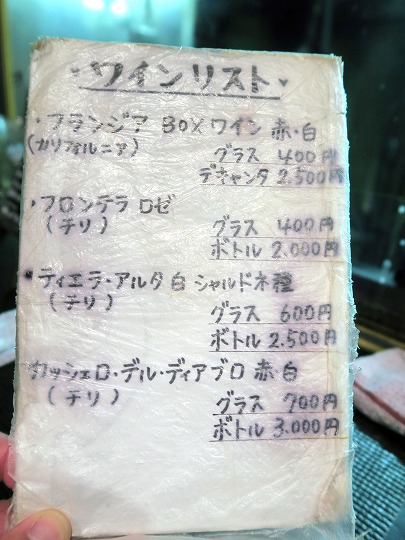 ・ワインリスト♥
・フランジア BOXワイン 赤・白
(カリフォルニア)
グラス 400円
デキャンタ 2.500円
・フロンテラ ロゼ
(チリ)
グラス 400円
ボトル 2.000円
・ティエラ・アルタ 白 シャルドネ種
(チリ)
グラス 600円
ボトル 2.500円
カッシェロ・デル・ディアブロ 赤・白
(チリ)
グラス 700円
ボトル 3.000円